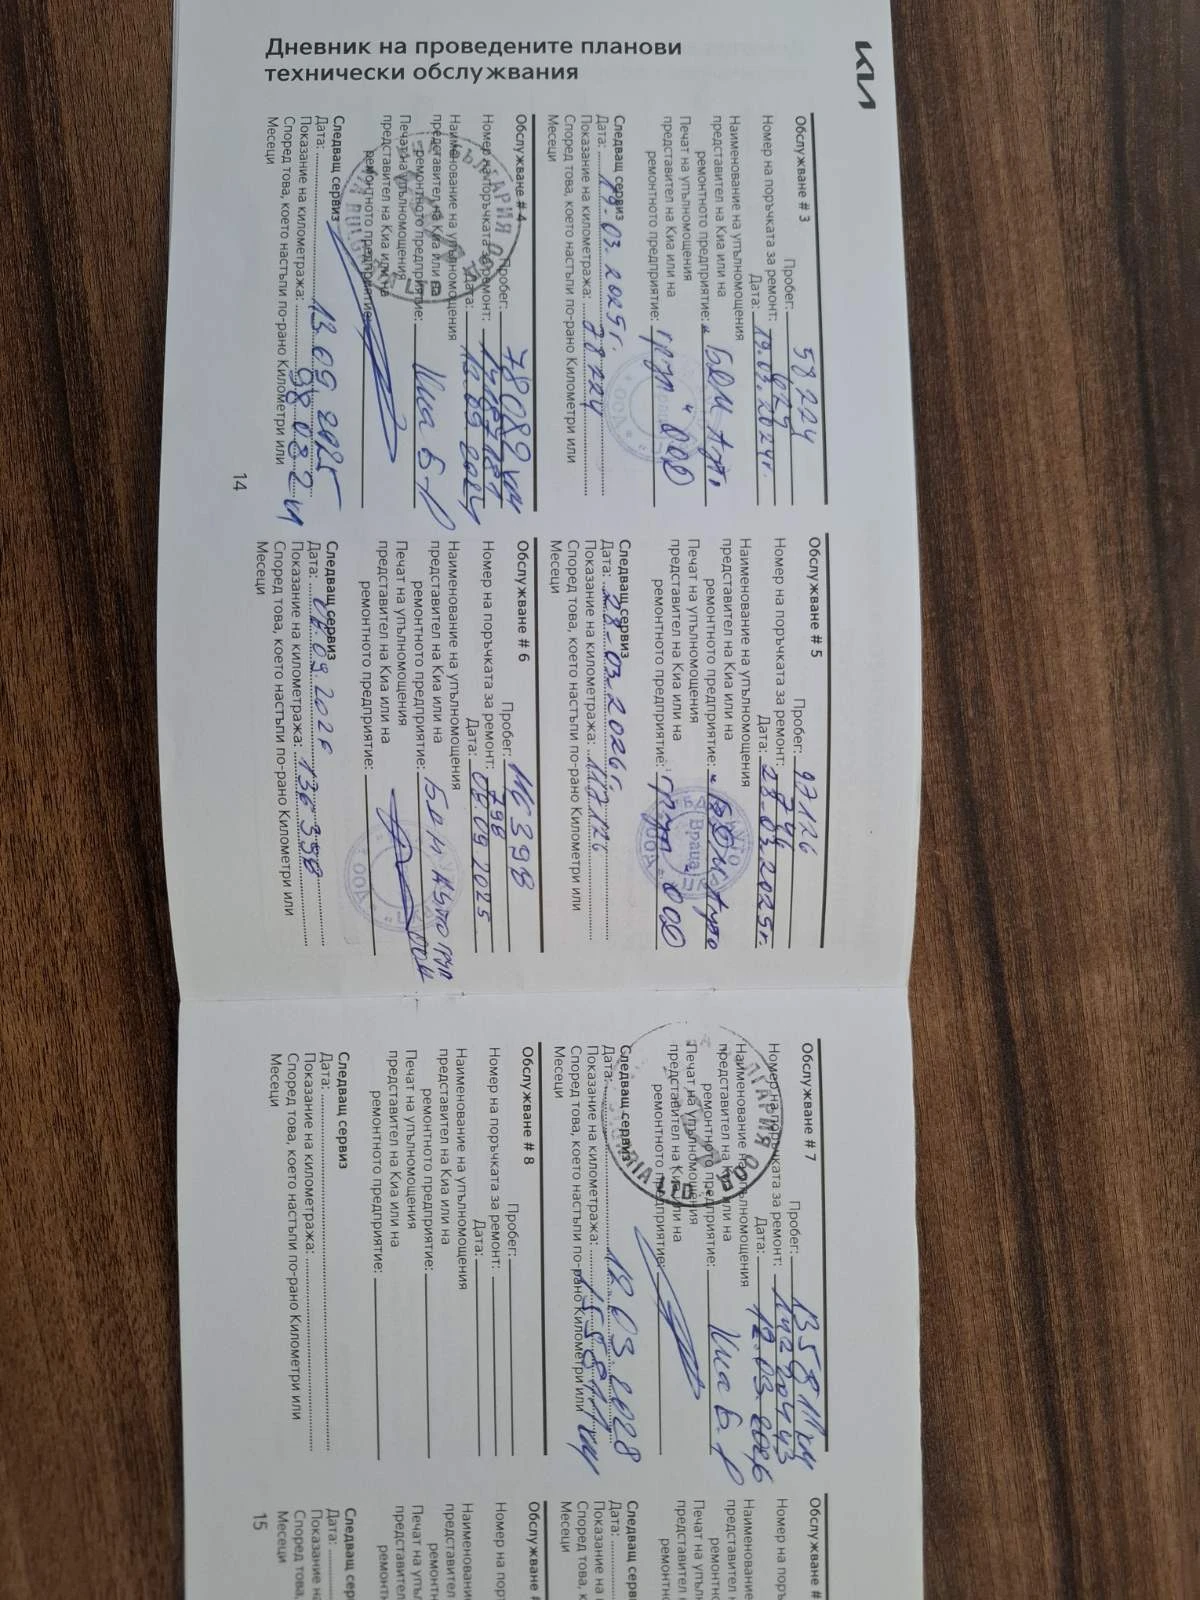 Дневник на проведените планови
технически обслужвания
KIA
Обслужване # 3
Пробег: 58 224
Номер на поръчката за ремонт: 629
Дата: 19.03.2024г.
Наименование на упълномощения
представител на Киа или на
ремонтното предприятие: "БДМ Ауто
Печат на упълномощения
представител на Киа или на
ремонтното предприятие: груп" ООД
Следващ сервиз
Дата: 19.03.2025г.
Показание на километража: 78224
Според това, което настъпи по-рано Километри или
Месеци
Обслужване # 4
Пробег: 78082 км
Номер на поръчката за ремонт:
Дата: 09 2024
Наименование на упълномощения
представител на Киа или на
ремонтното предприятие: Киа Б-Р
Печат на упълномощения
представител на Киа или на
ремонтното предприятие:
Следващ сервиз
Дата: 13.09.2025
Показание на километража: 98 082 км
Според това, което настъпи по-рано Километри или
Месеци
14
Обслужване # 5
Пробег: 97126
Номер на поръчката за ремонт: 744
Дата: 28.03.2025г.
Наименование на упълномощения
представител на Киа или на
ремонтното предприятие: "БДМ Ауто
Печат на упълномощения
представител на Киа или на
ремонтното предприятие: груп" ООД
Враца
Следващ сервиз
Дата: 28-03.2026г.
Показание на километража: 117126
Според това, което настъпи по-рано Километри или
Месеци
Обслужване # 6
Пробег: 116398
Номер на поръчката за ремонт: 796
Дата: 09.2025
Наименование на упълномощения
представител на Киа или на
ремонтното предприятие: БДМ АУТО ГРУП
ООД
Печат на упълномощения
представител на Киа или на
ремонтното предприятие:
Следващ сервиз
Дата: 09.2026
Показание на километража: 136 398
Според това, което настъпи по-рано Километри или
Месеци
Обслужване # 7
Пробег: 135811 км
Номер на поръчката за ремонт:
Дата: 12.03.2026
Наименование на упълномощения
представител на Киа или на
ремонтното предприятие: Киа Б.Р
Печат на упълномощения
представител на Киа или на
ремонтното предприятие:
Следващ сервиз
Дата: 12.03.2028
Показание на километража: 155811 км
Според това, което настъпи по-рано Километри или
Месеци
Обслужване # 8
Пробег:
Номер на поръчката за ремонт:
Дата:
Наименование на упълномощения
представител на Киа или на
ремонтното предприятие:
Печат на упълномощения
представител на Киа или на
ремонтното предприятие:
Следващ сервиз
Дата:
Показание на километража:
Според това, което настъпи по-рано Километри или
Месеци
Обслужване #
Номер на
Наименование
представител
Печат на
представител
Следващ
Дата:
Показание
Според това,
Месеци
Обслужване #
Номер на
Наименование
представител
Печат на
представител
Следващ
Дата:
Показание
Според това,
Месеци
15